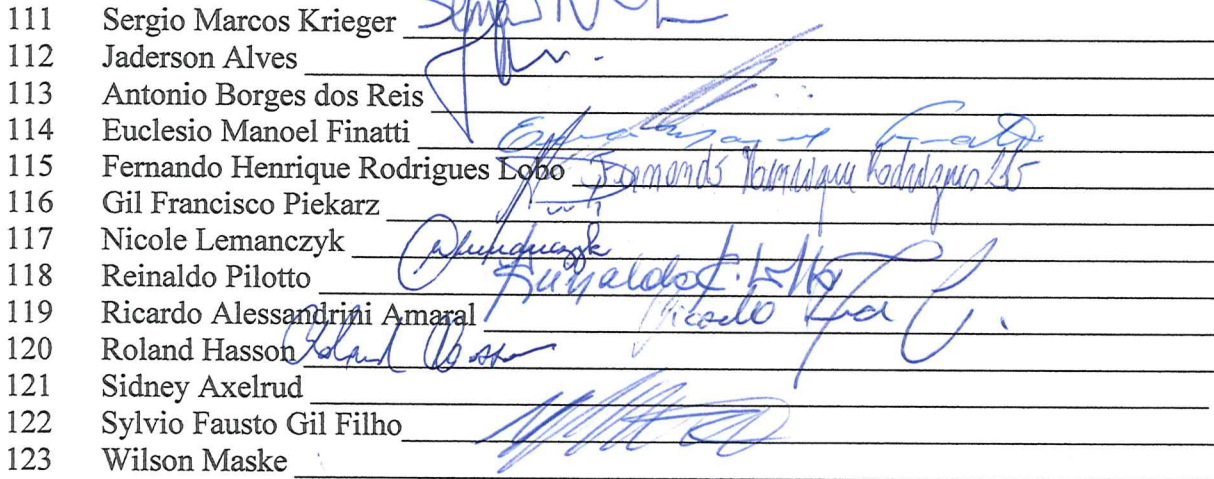 111 Sergio Marcos Krieger
112 Jaderson Alves
113 Antonio Borges dos Reis
114 Euclesio Manoel Finatti
115 Fernando Henrique Rodrigues Lobo Fernando Henrique Rodrigues
116 Gil Francisco Piekarz
117 Nicole Lemanczyk
118 Reinaldo Pilotto Reinaldo
119 Ricardo Alessandrini Amaral Ricardo
120 Roland Hasson Roland Hasson
121 Sidney Axelrud
122 Sylvio Fausto Gil Filho
123 Wilson Maske